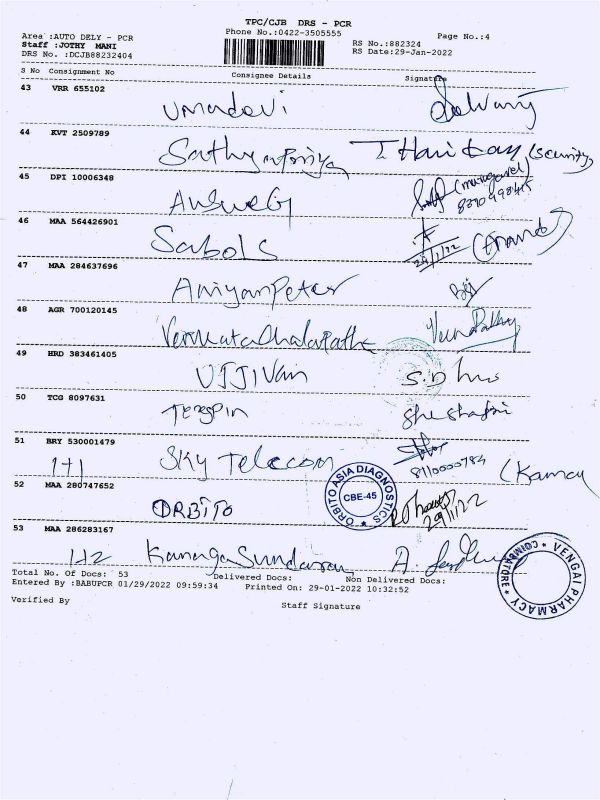 TPC/CJB DRS - PCR
Area :AUTO DELY - PCR
Phone No.:0422-3505555
Page No.:4
Staff :JOTHY MANI
RS No.:882324
DRS No. :DCJB88232404
RS Date:29-Jan-2022
S No Consignment No Consignee Details Signature
43 VRR 655102
Umadevi
44 KVT 2509789
Sathyapriya T Hari (Security)
45 DPI 10006348
46 MAA 564426901
29/1/22 (Anand)
47 MAA 284637696
Aniyan Peter
48 AGR 700120145
Venkatachalapathe
49 HRD 383461405
UJJIVan
50 TCG 8097631
51 BRY 530001479
1+1 Sky Telecom
52 MAA 280747652
ORBITO 29/1/22
ORBITO ASIA DIAGNOSTICS
CBE-45
53 MAA 286283167
1+2 KanagaSundaram
VENGAI PHARMACY * COIMBATORE *
Total No. Of Docs: 53 Delivered Docs: Non Delivered Docs:
Entered By :BABUPCR 01/29/2022 09:59:34 Printed On: 29-01-2022 10:32:52
Verified By
Staff Signature